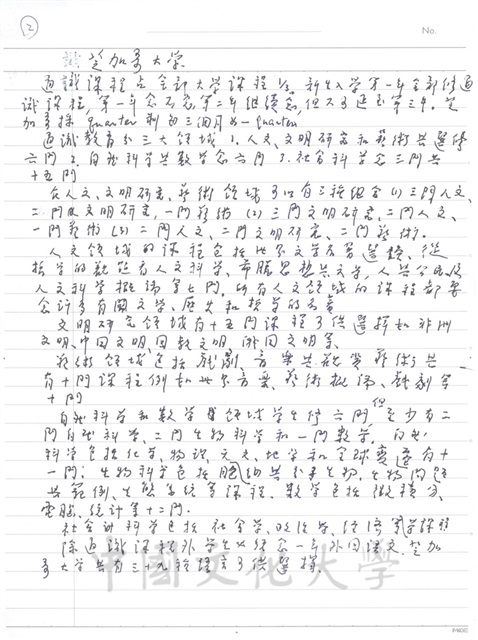 ②
No.
芝加哥大學
通識課程占全部大學課程1/3。新生入學第一年全部修通
識課程,第一年念不完第二年繼續念,但不可延至第三年。芝
加哥採quarter制即三個月為一quarter
通識教育分三大領域 1.人文、文明研究和藝術共選修
六門 2.自然科學共數學念六門 3.社會科學念三門共
十五門
在人文、文明研究、藝術領域可以有三種組合(1)三門人文、
二門文明研究,一門藝術 (2)三門文明研究、二門人文、
一門藝術 (3)二門人文、二門文明研究、二門藝術。
人文領域的課程包括世界文學名著選讀、從
哲學的觀點看人文科學、希臘思想與文學,人與公民及
人文科學概論等七門,所有人文領域的課程都要
會計有關文學、歷史和哲學的名著
文明研究領域有十五門課程可供選擇如非洲
文明、中國文明、回教文明、俄國文明等。
藝術領域包括戲劇、音樂與視覺藝術共
有十門課程例如世界音樂、藝術概論、戲劇等
十門
自然科學和數學領域學生修六門,但至少有二
門自然科學、二門生物科學和一門數學,自然
科學包括化學、物理、天文、地學和全球變遷有十
一門;生物科學包括細胞與分子生物、生物問題
與範例、生態系統等課程、數學包括微積分、
電腦、統計等十二門。
社會科學包括社會學、政治學、經濟學等課程
除通識課程外學生必須念一年外國語文,芝加
哥大學共有三十九種語言可供選擇。
中國文化大學